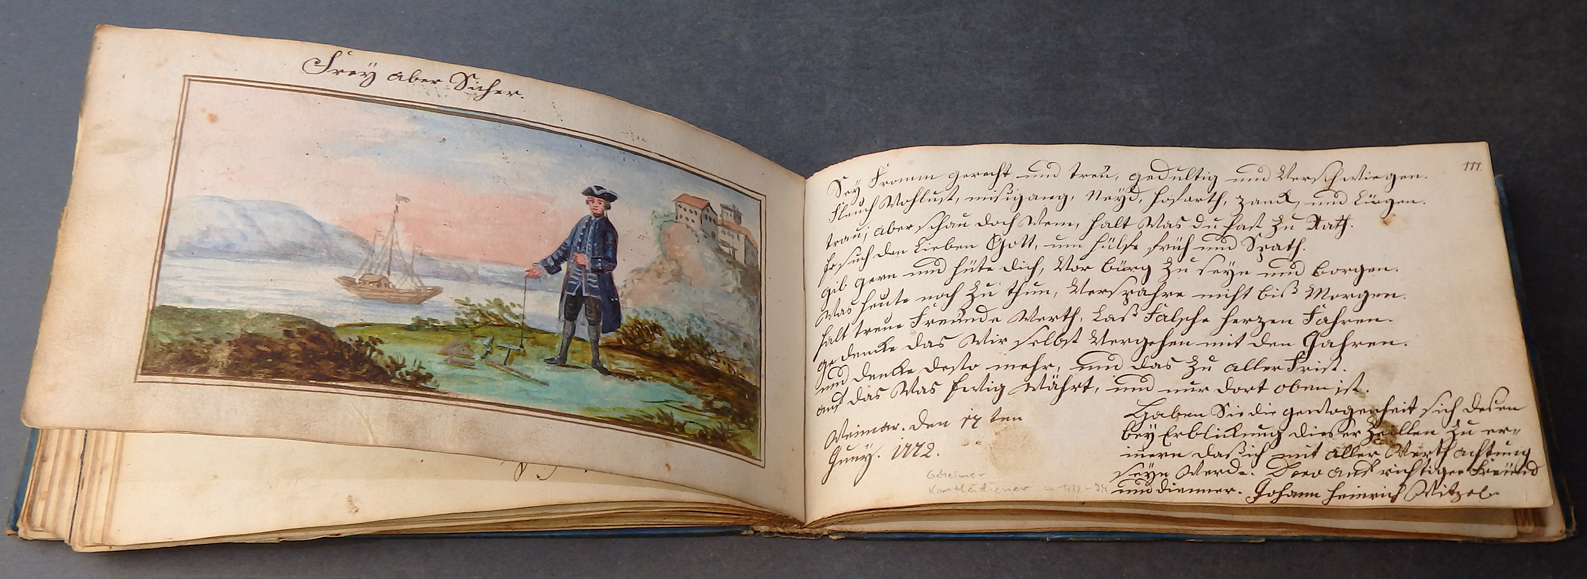 Frey aber Sicher.
111
Sey Fromm gerecht und treu, gedultig und Verschwiegen.
fleuch Wohlust, müsigang, Neÿd, hofarth, Zanck, und Lügen.
trau; aber schau doch Wem, halt Was du hast zu Rath.
Ersuch den Lieben Gott, um hülfe früh und Spath.
gib gern und hüte dich, Vor bürg zu seyn und borgen.
Was heute noch zu thun, Verspahre nicht biß Morgen.
halt treue Freunde Werth, Laß Falsche herzen Fahren.
gedencke das Wir selbst Vergehen mit den Jahren.
und dencke desto mehr, und das zu aller Frist.
auf das Was Ewig Währt, und nur dort oben ist.
Weimar. den 17 ten
Juny. 1772.
Haben Sie die gewogenheit sich deren
bey Erblickung dieser Zeillen zu er-
innern daß ich mit aller Werthachtung
seyn Werde. Dero aufrichtiger Freund
und diener. Johann Heinrich Witzel
Geheimer